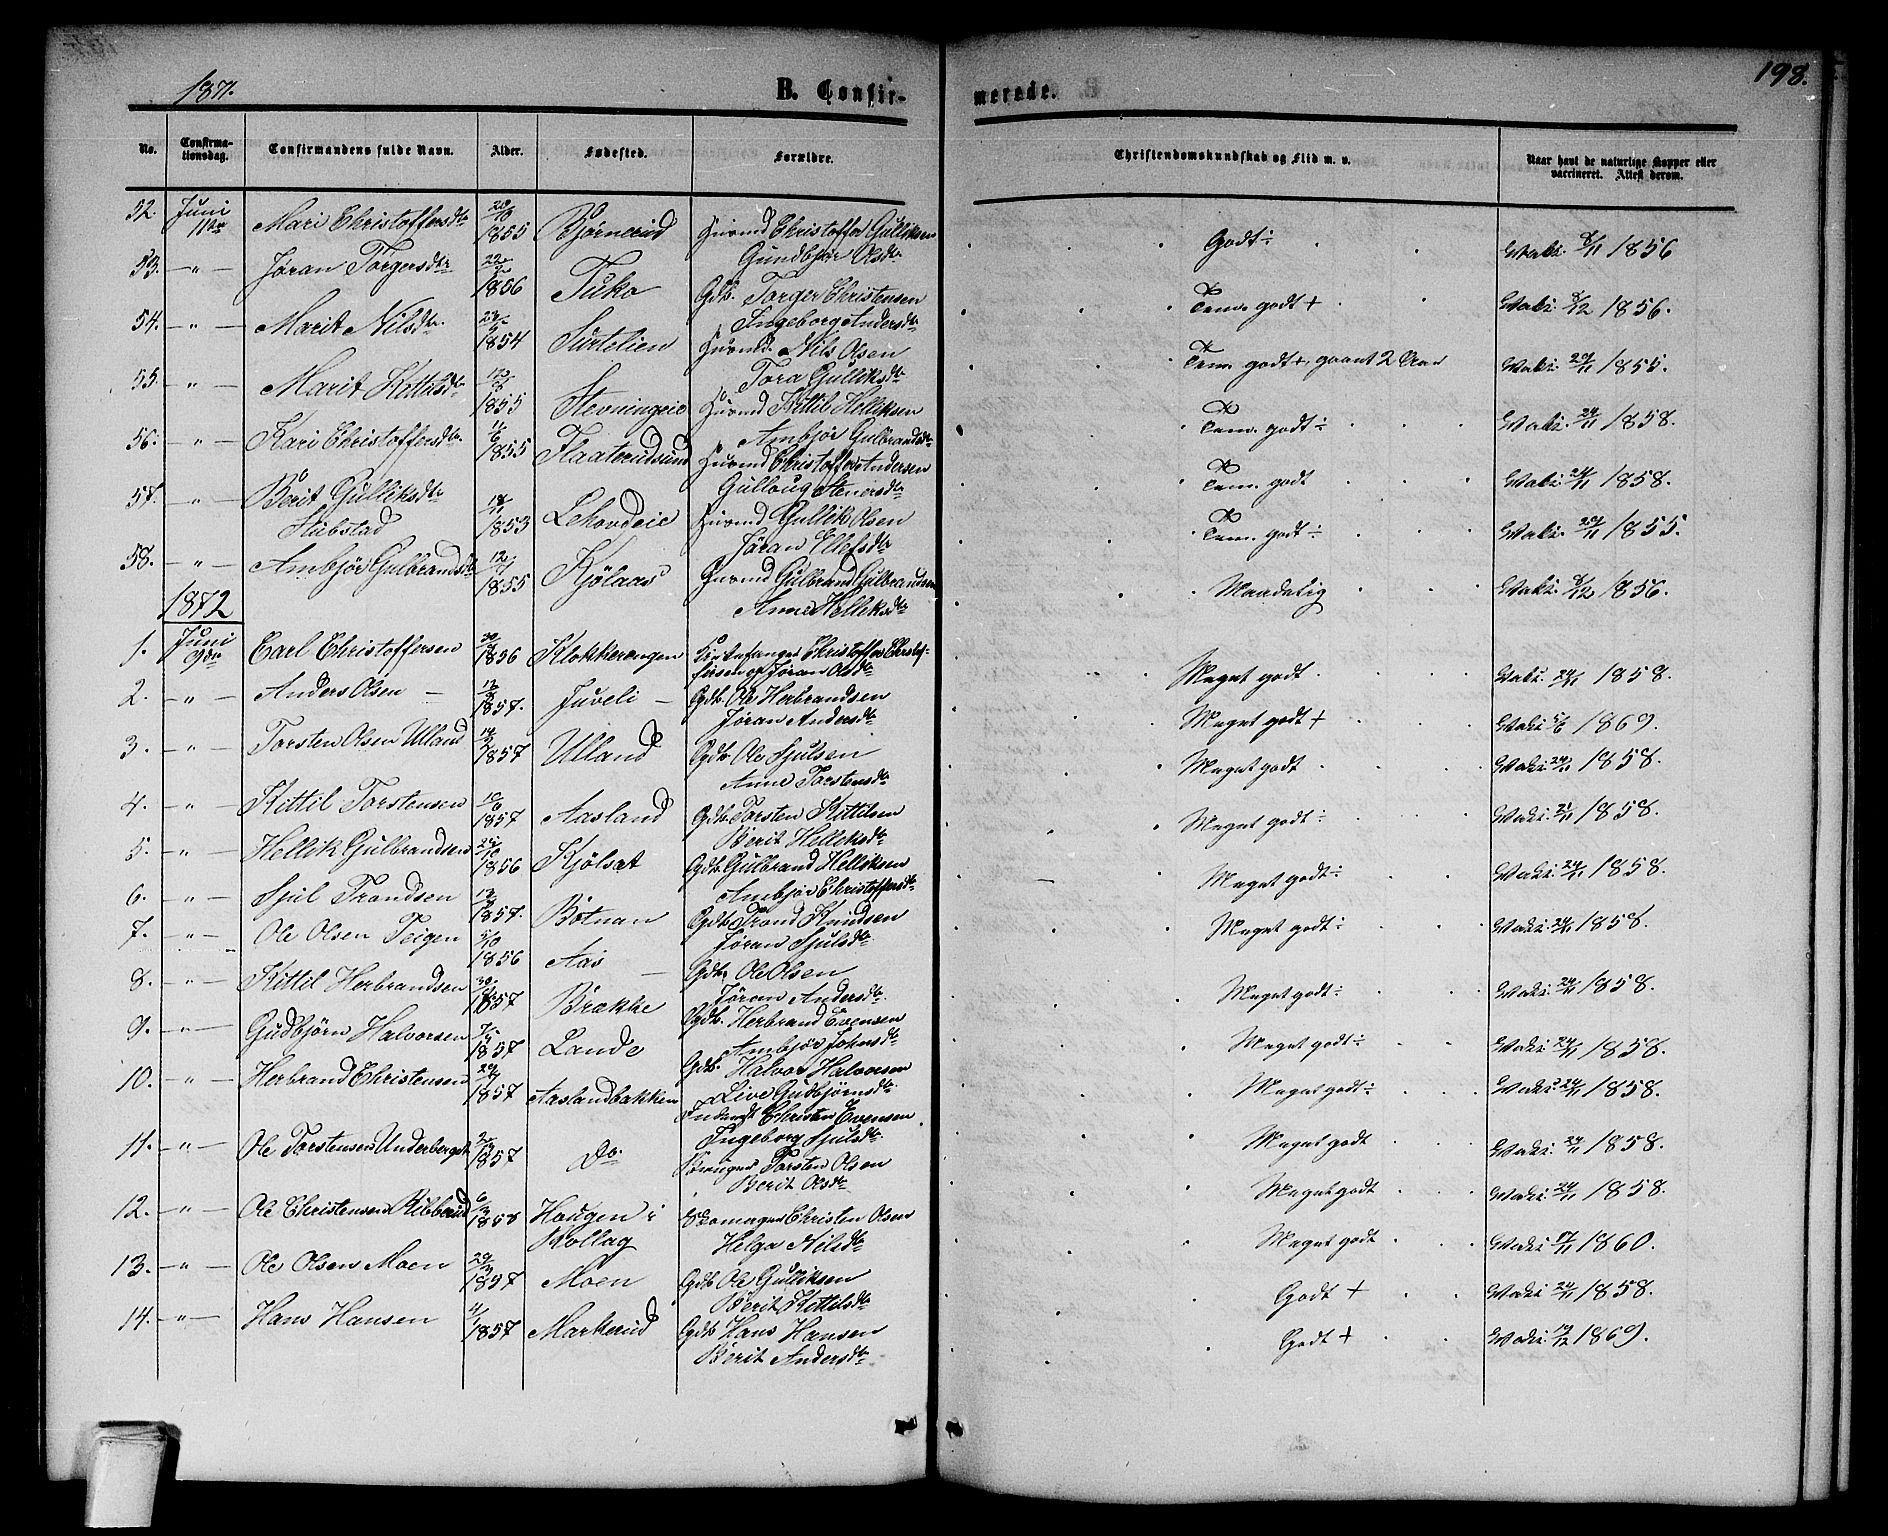 1871.
B. Confir-
merede.
198.
No.
Confirma-
tionsdag.
Confirmandens fulde Navn.
Alder.
Fødested.
Forældre.
Christendomskundskab og Flid m. v.
Naar havt de naturlige Kopper eller
vaccineret. Attest derom.
52. Juni 11te Mari Christoffersdtr 20/10 1855 Bjørnerud Huusmd Christoffer Gulliksen
Gundbjør Olsdtr Godt ÷ Vaks. 8/11 1856
53. -"- Jøran Torgersdtr 22/2 1856 Tuko Gdb. Torger Christensen
Ingeborg Andersdtr Tem. godt + Vaks. 8/12 1856.
54. -"- Marit Nilsdtr. 1854 Surtelien Huusmd. Nils Olsen
Tora Gulliksdtr Tem. godt +, 2 Aar Vaks. 29/11 1855.
55. -"- Marit Kittilsdtr 1855 Stevningeie Huusmd Kittil Helliksen
Ambjør Gulbrandsdtr Tem. godt ÷ Vaks. 24/11 1858.
56. -"- Kari Christoffersdtr. 1855 Flaaterudsund Huusmd Christoffer Andersen
Gulloug Steversdtr Tem. godt Vaks. 24/11 1858.
57. -"- Berit Gulliksdtr 18/11 1853 Lehovdeie Huusmd Gullik Olsen
Stubstad
Jøran Ellefsdtr Tem. godt ÷ Vaks. 29/11 1855.
58. -"- Ambjør Gulbrandsdtr 12/7 1855 Kjølaas Huusmd Gulbrand Gulbrandsen
Anne Helliksdtr Maadelig Vaks. 8/12 1856.
1872
1. Juni 9de Carl Christoffersen 1856 Klokkerengen Christoffer Christof-
fersen og Jøran Olsdtr Meget godt Vaks. 24/11 1858.
2. -"- Anders Olsen - 1857. Juveli - Gdb. Ole Herbrandsen
Jøran Andersdtr Meget godt + Vaks. 1869.
3. -"- Torsten Olsen Ulland 1857 Ulland Gdb. Ole Sjulsen
Anne Torstensdtr Meget godt Vaks. 24/11 1858.
4. -"- Kittil Torstensen 1857 Aasland Gdb. Torsten Kittilsen
Berit Helleksdtr Meget godt ÷ Vaks. 1858.
5. -"- Hellik Gulbrandsen 1856 Kjølsat Gdb. Gulbrand Helliksen
Ambjør Christoffersdtr Meget godt ÷ Vaks. 24/11 1858.
6. -"- Sjul Trondsen 1857. Botnan Gdb. Trond Knudsen
Jøran Sjulsdtr Meget godt ÷ Vaks. 24/11 1858.
7. -"- Ole Olsen Teigen 5/10 1856 Aas - Gdb. Ole Olsen
Jøran Andersdtr. Meget godt ÷ Vaks. 24/11 1858.
8. -"- Kittil Herbrandsen 1857 Brække Gdb. Herbrand Evensen
Ambjør Johnsdtr Meget godt ÷ Vaks. 24/11 1858.
9. -"- Gudbjørn Halvorsen 1857 Lande Gdb. Halvor Halvorsen
Live Gudbjørnsdtr. Meget godt ÷ Vaks. 24/11 1858.
10. -"- Herbrand Christensen 1857 Aaslandbakken Inderst Christen Evensen
Ingeborg Sjulsdtr. Meget godt Vaks. 24/11 1858.
11. -"- Ole Torstensen Underberget 1857 Do. Torsten Olsen
Berit Olsdtr Meget godt Vaks. 24/11 1858.
12. -"- Ole Christensen Ribberud 1858 Haugen i
Rollag Skomager Christen Olsen
Helga Nilsdtr Meget godt Vaks. 1860.
13. -"- Ole Olsen Moen 1857 Moen Gdb. Ole Gulliksen
Berit Kittilsdtr Godt + Vaks. 24/11 1858.
14. -"- Hans Hansen 1857 Markerud Gdb. Hans Hansen
Berit Andersdtr Godt + Vaks. 1869.